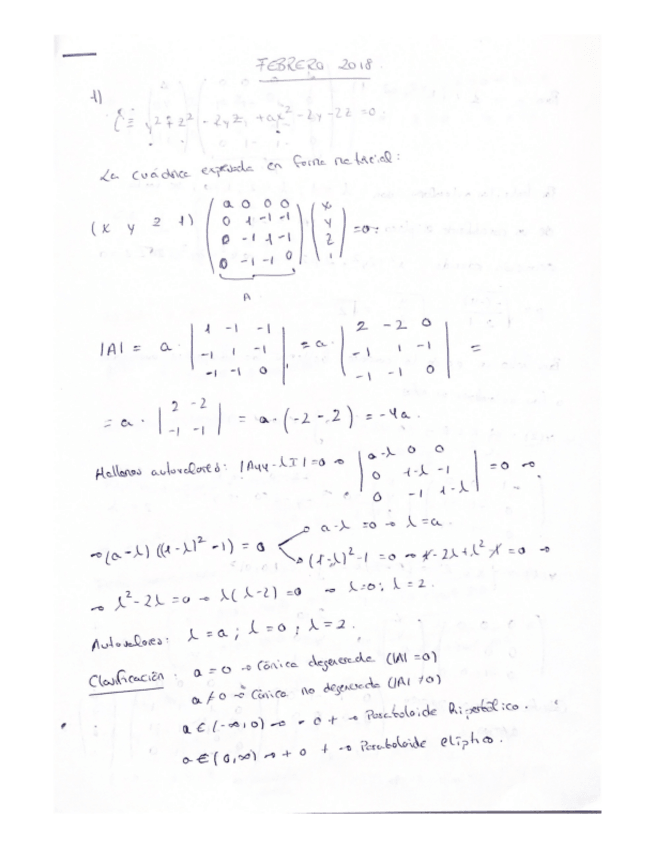 FEBRERO 2018.
1)
ξ ≡ y² + z² - 2yz + ax² - 2y - 2z = 0
La cuádrica expresada en forma matricial:
(x y z 1) (a 0 0 0 / 0 1 -1 -1 / 0 -1 1 -1 / 0 -1 -1 0) (x / y / z / 1) = 0:
A
|A| = a · |1 -1 -1 / -1 1 -1 / -1 -1 0| = a · |2 -2 0 / -1 1 -1 / -1 -1 0| =
= a · |2 -2 / -1 -1| = a · (-2 - 2) = -4a.
Hallamos autovalores: |A44 - λI| = 0 → |a-λ 0 0 / 0 1-λ -1 / 0 -1 1-λ| = 0 →
→ (a-λ) ((1-λ)² - 1) = 0
a-λ = 0 → λ = a.
(1-λ)² - 1 = 0 → 1 - 2λ + λ² - 1 = 0 →
→ λ² - 2λ = 0 → λ(λ-2) = 0 → λ=0; λ=2.
Autovalores: λ = a; λ = 0; λ = 2.
Clasificación: a = 0 → Cónica degenerada (|A| = 0)
a ≠ 0 → Cónica no degenerada (|A| ≠ 0)
a ∈ (-∞, 0) → - 0 + → Paraboloide Hiperbólico.
a ∈ (0, ∞) → + 0 + → Paraboloide elíptico.